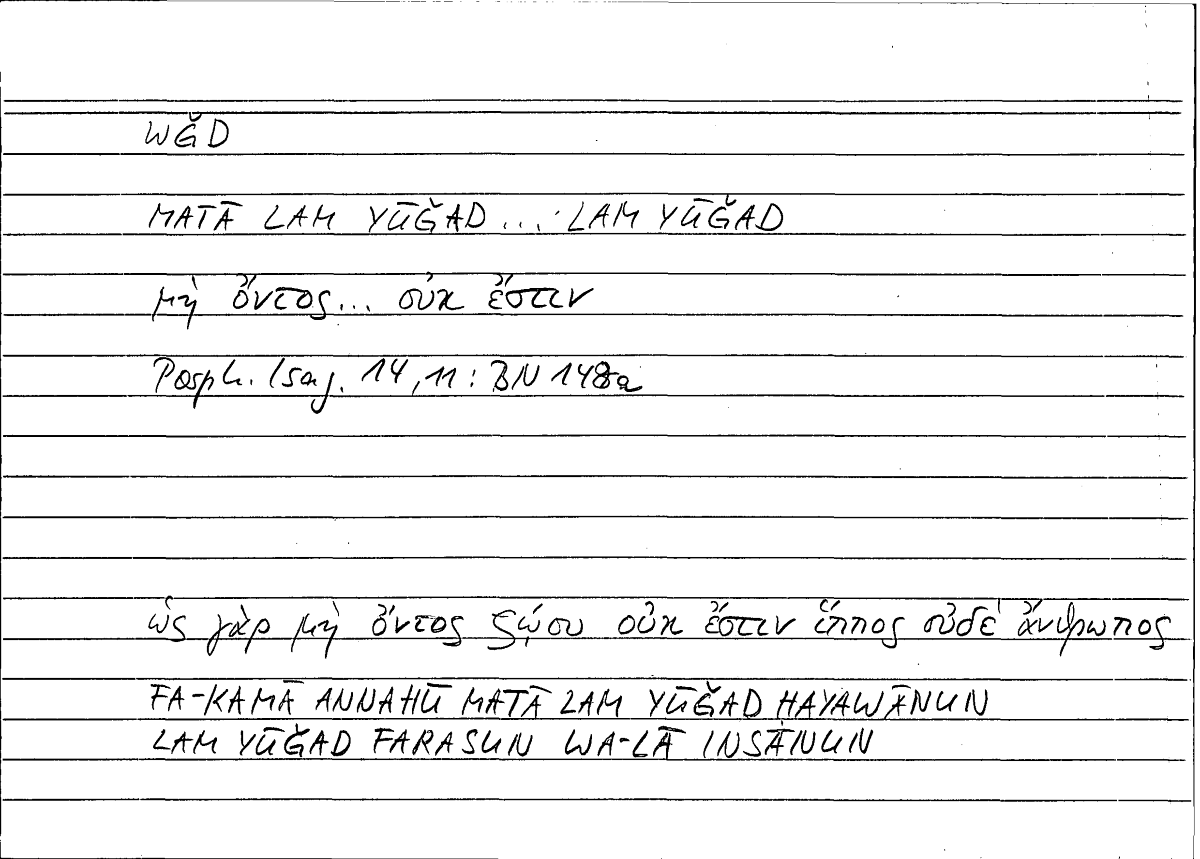 WǦD
MATĀ LAM YŪǦAD ... LAM YŪǦAD
μὴ ὄντος... οὐκ ἔστιν
Porph. Isag. 14,11: BN 148a
ὡς γὰρ μὴ ὄντος ζῴου οὐκ ἔστιν ἵππος οὐδὲ ἄνθρωπος
FA-KAMĀ ANNAHŪ MATĀ LAM YŪǦAD HAYAWĀNUN
LAM YŪǦAD FARASUN WA-LĀ INSĀNUN